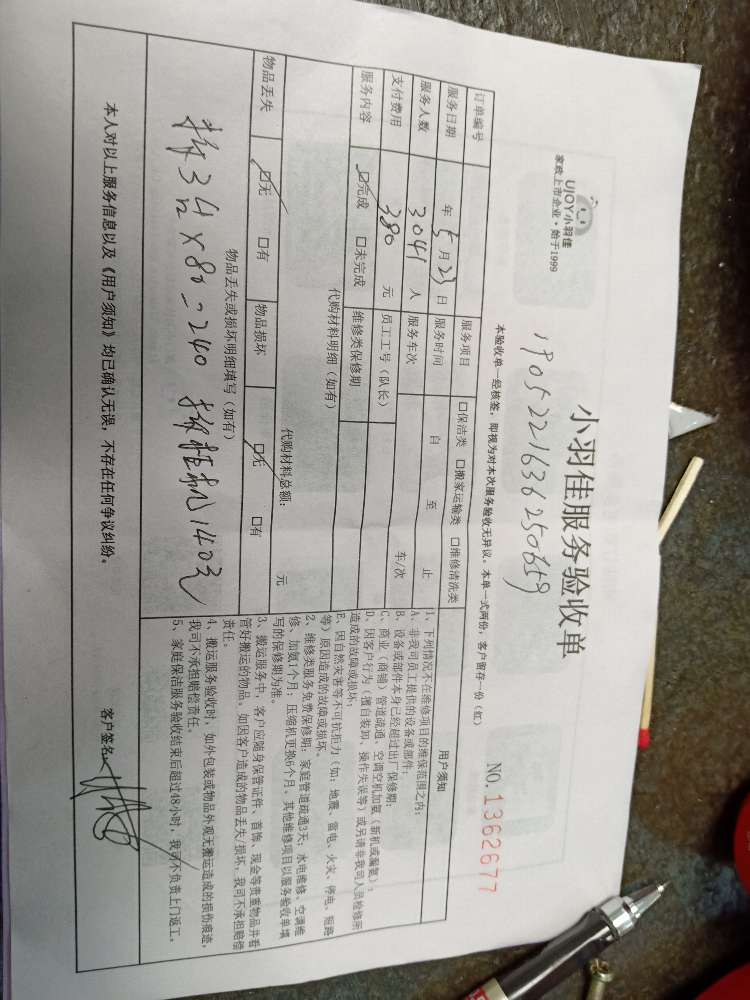 UJOY小羽佳
家政上市企业·始于1999
小羽佳服务验收单
1905221636250659
NO.1362677
本验收单一经核签，即视为对本次服务验收无异议。本单一式两份，客户留存一份（红）
订单编号
服务项目 口保洁类 口搬家运输类 口维修清洗类
服务日期 年 5 月 23 日 服务时间 自 至 止
服务人数 3041 人 服务车次 车/次
支付费用 380 元 员工工号（队长）
服务内容 口完成 口未完成 维修类保修期
代购材料明细（如有）
代购材料总额： 元
物品丢失 口无 口有 物品损坏 口无 口有
物品丢失或损坏明细填写（如有）
拆3台×80=240 拆挂机140元
用户须知
1、下列情况不在维修项目的维保范围之内：
A、非我司员工提供的设备或部件；
B、设备或部件本身已经超过出厂保修期；
C、商业（商铺）管道疏通、空调空机加氨（新机或漏氨）；
D、因客户行为（擅自装卸、操作失误等）或另请非我司人员检修所
造成的故障或损坏；
E、因自然灾害等不可抗拒力（如：地震、雷电、火灾、停电、短路
等）原因造成的故障或损坏。
2、维修类服务免费保修期：家庭管道疏通3天；水电维修、空调维
修、加氨1个月；压缩机更换6个月，其他维修项目以服务验收单填
写的保修期为准。
3、搬运服务中，客户应随身保管证件、首饰、现金等贵重物品并看
管好搬运的物品，如因客户造成的物品丢失/损坏，我司不承担赔偿
责任。
4、搬运服务验收时，如外包装或物品外观无搬运造成的损伤痕迹，
我司不承担赔偿责任。
5、家庭保洁服务验收结束后超过48小时，我司不负责上门返工。
本人对以上服务信息以及《用户须知》均已确认无误，不存在任何争议纠纷。
客户签名：